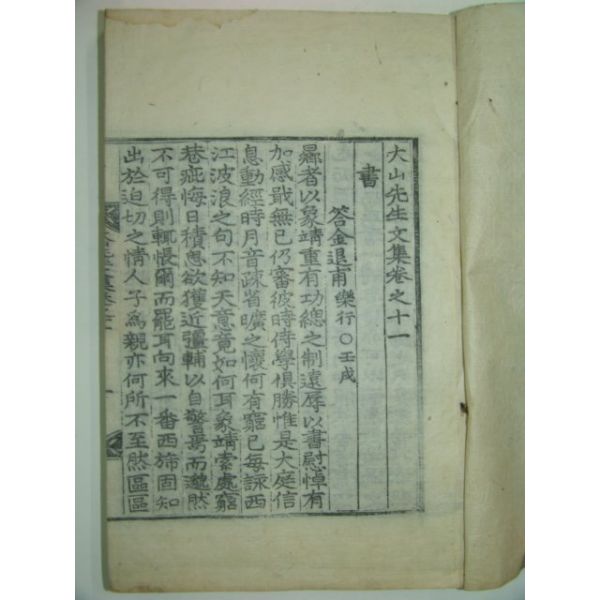 大山先生文集卷之十一
書
答金退甫 樂行○壬戌
曏者以象靖重有功緦之制遠辱以書慰悼有
加感戢無已仍審彼時侍學俱勝惟是大庭信
息動經時月音疎省曠之懷何有窮已每詠西
江波浪之句不知天意竟如何耳象靖索處窮
巷疵悔日積思欲獲近彊輔以自警焉而邈然
不可得則輒悵爾而罷耳向來一番西斾固知
出於迫切之情人子爲親亦何所不至然區區